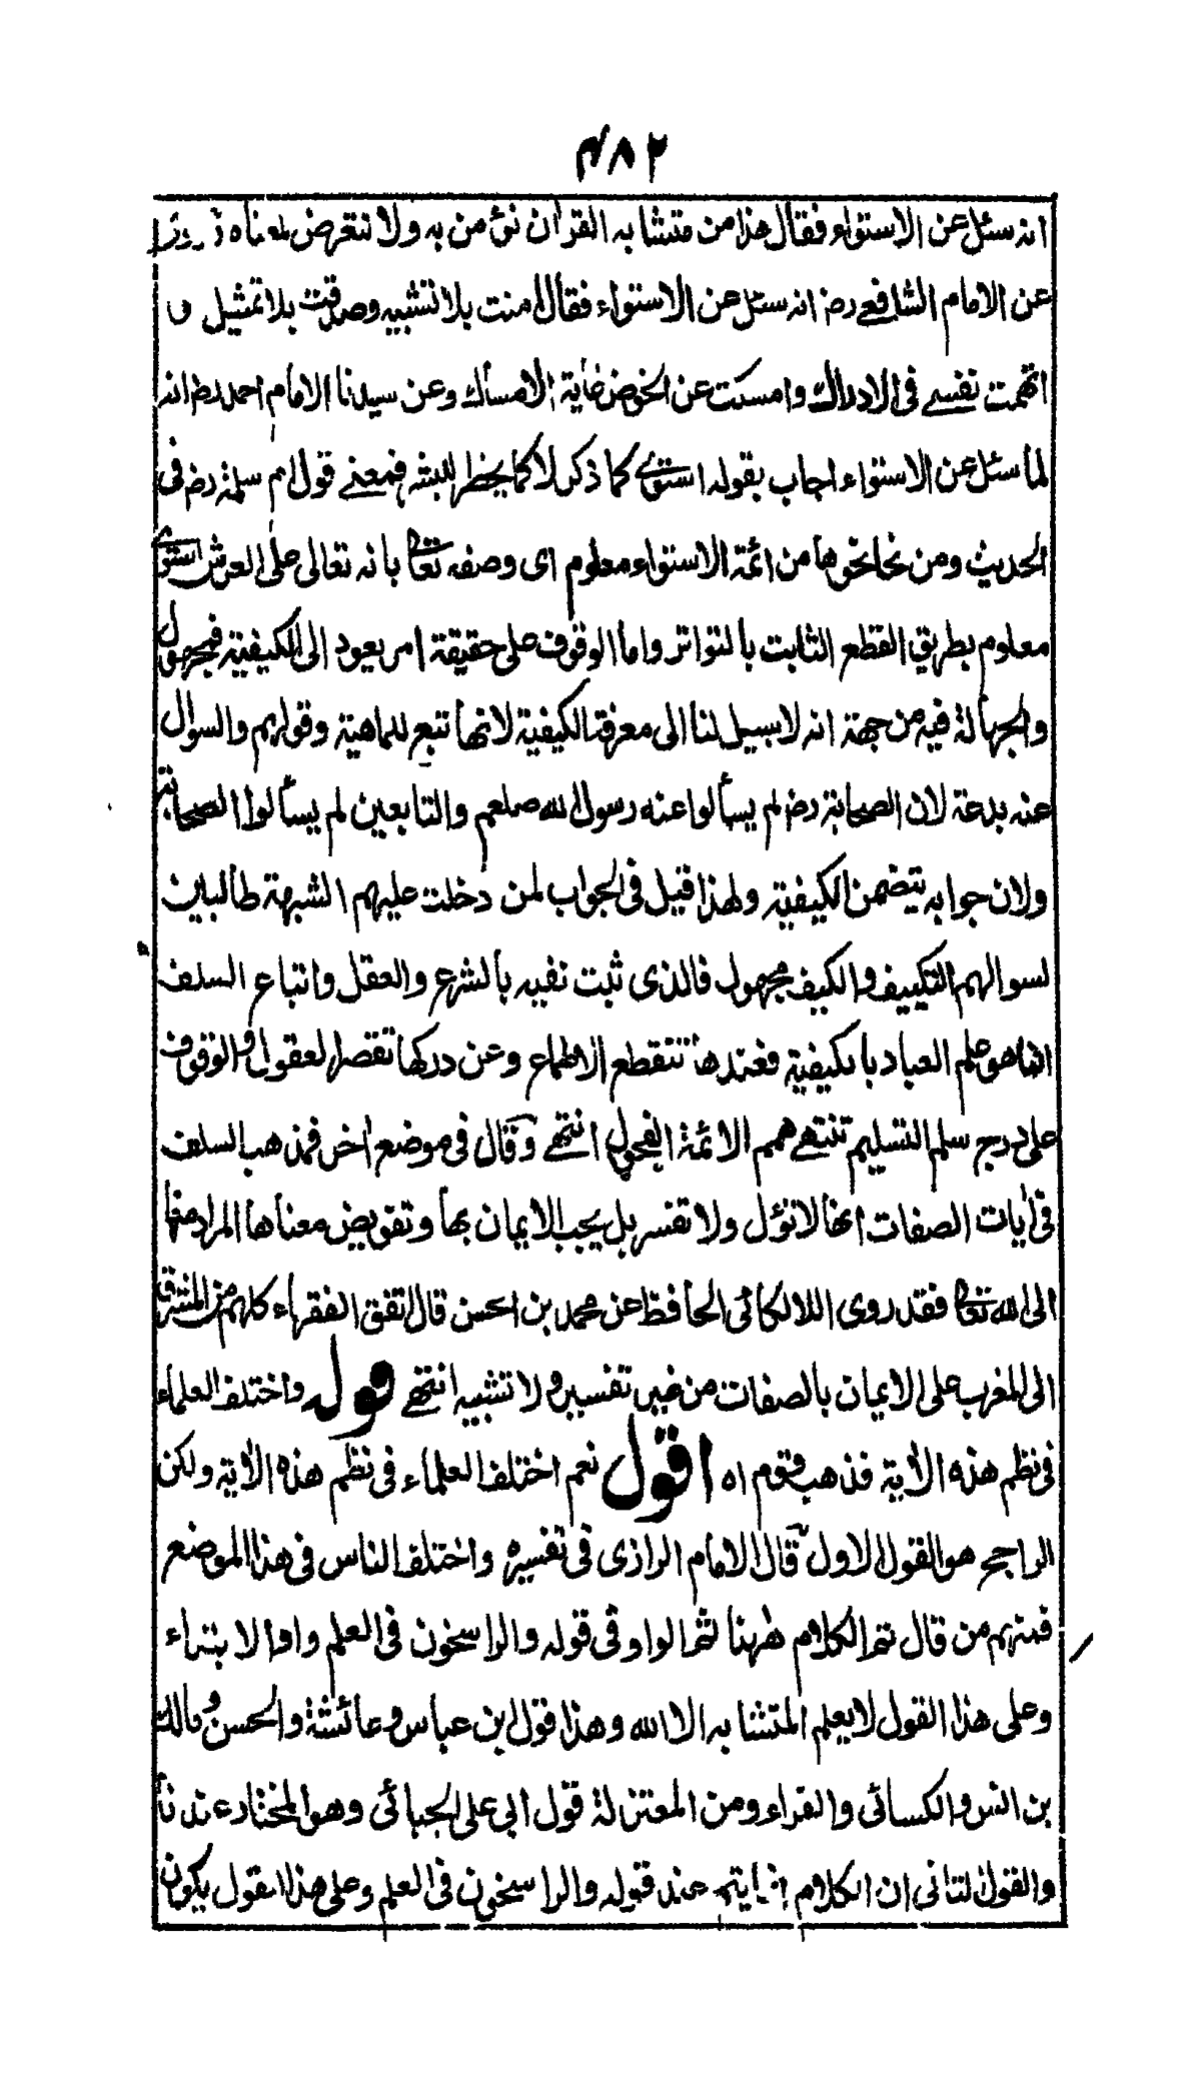 ٤٨٢
انه سئل عن الاستواء فقال هذا من متشابه القرآن نؤمن به ولا نتعرض لمعناه
عن الامام الشافعے رضہ انه سئل عن الاستواء فقال اٰمنت بلا تشبيه وصدقت بلا تمثيل و
اتهمت نفسے فی الادراك وامسكت عن الخوض غاية الامساك وعن سيدنا الامام احمد رضہ انه
لما سئل عن الاستواء اجاب بقوله استوے كما ذكر لا كما يخطر للبشر فمعنے قول ام سلمة رضہ فی
الحديث ومن نحا نحوها من ائمة الاستواء معلوم ای وصفه تعالٰی بانه تعالى على العرش استوے
معلوم بطريق القطع الثابت بالتواتر واما الوقوف على حقيقة امر يعود الى الكيفية فمجهول
والجهالة فيه من جهة انه لا سبيل لنا الى معرفة الكيفية لانها تتبع للماهية وقولهم والسوال
عنه بدعة لان الصحابة رضہ لم يسألوا عنه رسول الله صلعم والتابعين لم يسألوا الصحابة
ولان جوابه يتضمن الكيفية ولهذا قيل فی الجواب لمن دخلت عليهم الشبهة طالبين
لسوالهم التكييف والكيف مجهول فالذی ثبت نفيه بالشرع والعقل واتباع السلف
انما هو علم العباد بالكيفية فعندها تنقطع الاطماع وعن دركها تقصر العقول والوقوف
على درج سلم التسليم تنتهے همم الائمة الفحول انتهے وقال فی موضع اٰخر فمذهب السلف
فی اٰيات الصفات انها لا تؤل ولا تفسر بل يجب الايمان بها وتفويض معناها المراد منها
الى الله تعالٰی فقد روى اللالكائی الحافظ عن محمد بن الحسن قال اتفق الفقهاء كلهم من المشرق
الى المغرب على الايمان بالصفات من غير تفسير ولا تشبيه انتهے قوله واختلف العلماء
فی نظم هذه الاٰية فذهب قوم اه اقول نعم اختلف العلماء فی نظم هذه الاٰية ولكن
الراجح هو القول الاول قال الامام الرازی فی تفسيره واختلف الناس فی هذا الموضع
فمنهم من قال تم الكلام هٰهنا ثم الواو فی قوله والراسخون فی العلم واو الابتداء
وعلى هذا القول لا يعلم المتشابه الا الله وهذا قول ابن عباس وعائشة والحسن ومالك
بن انس والكسائی والفراء ومن المعتزلة قول ابی علی الجبائی وهو المختار عندنا
والقول الثانی ان الكلام انما يتم عند قوله والراسخون فی العلم وعلى هذا القول يكون